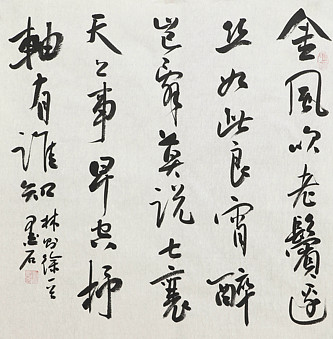 金風吹老鬢邊
丝如此良宵醉
豈辭莫説七襄
天上事早空杼
軸有誰知
林则徐
墨石